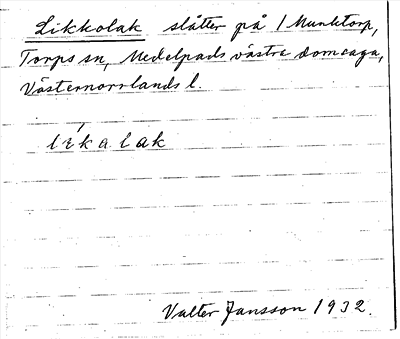 Likkolak slåtter på 1 Munktorp,
Torps sn, Medelpads västra domsaga,
Västernorrlands l.
likalak
Valter Jansson 1932.